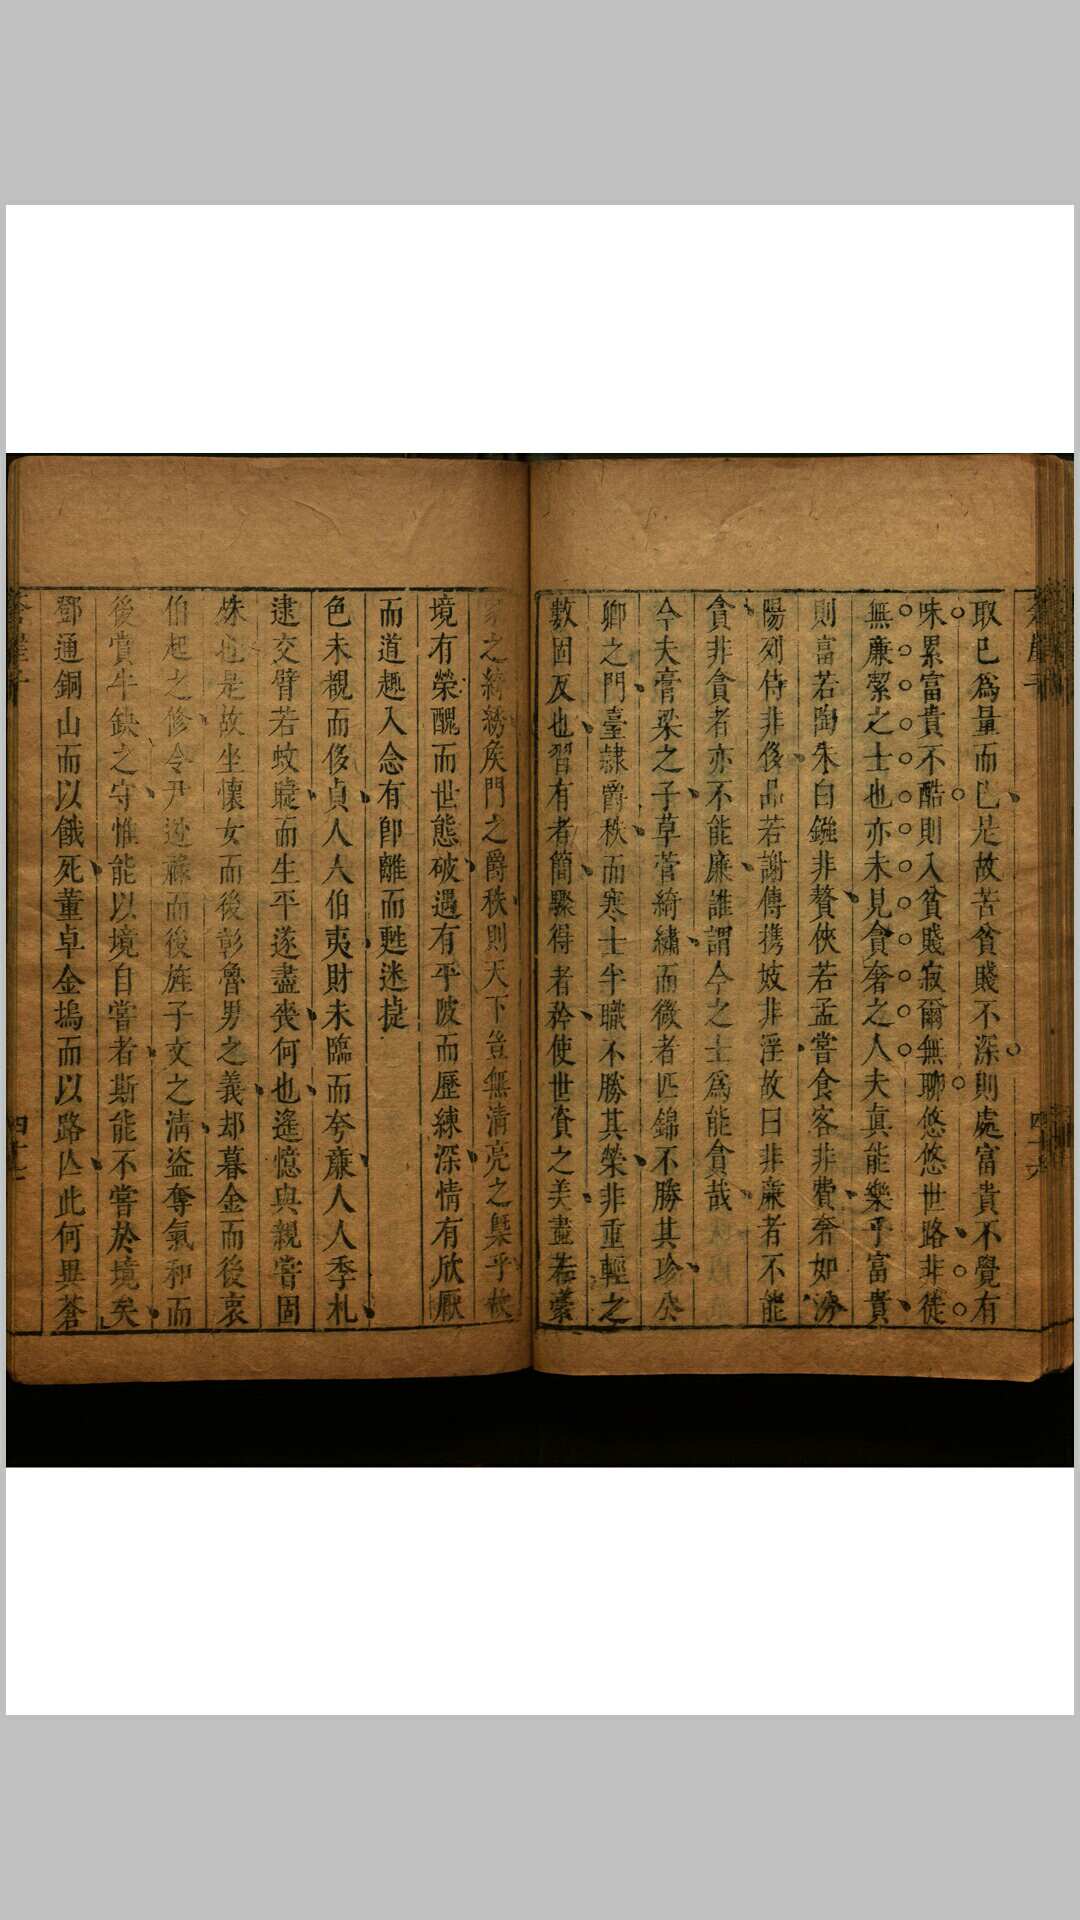 取已爲量而已是故苦貧賤不深則處富貴不覺有
味累富貴不酷則入貧賤寂爾無聊悠悠世路非徒
無廉潔之士也亦未見貪奢之人夫眞能樂乎富貴
則富若陶朱白鏹非贅俠若孟嘗食客非費奢如汾
陽列侍非侈品若謝傅携妓非淫故曰非廉者不能
貪非貪者亦不能廉誰謂今之士爲能貪哉
今夫膏梁之子草菅綺繡而微者匹錦不勝其珍公
卿之門臺隷爵秩而寒士半職不勝其榮非重輕之
數固反也習有者簡驟得者矜使世資之美盡若
家之綺綉矦門之爵秩則天下豈無清亮之槩乎故
境有榮醜而世態破遇有平陂而歷練深情有欣厭
而道趣入念有卽離而甦迷捷
色未覩而侈貞人人伯夷財未臨而夸廉人人季札
逮交臂若蚊睫而生平遂盡喪何也遙憶與親嘗固
殊也是故坐懷女而後彰魯男之義却暮金而後衷
伯起之修令尹逃祿而後旌子文之清盜奪氣和而
後賞牛缺之守惟能以境自嘗者斯能不嘗於境矣
鄧通銅山而以餓死董卓金塢而以路亾此何異蒼
四十六
四十七